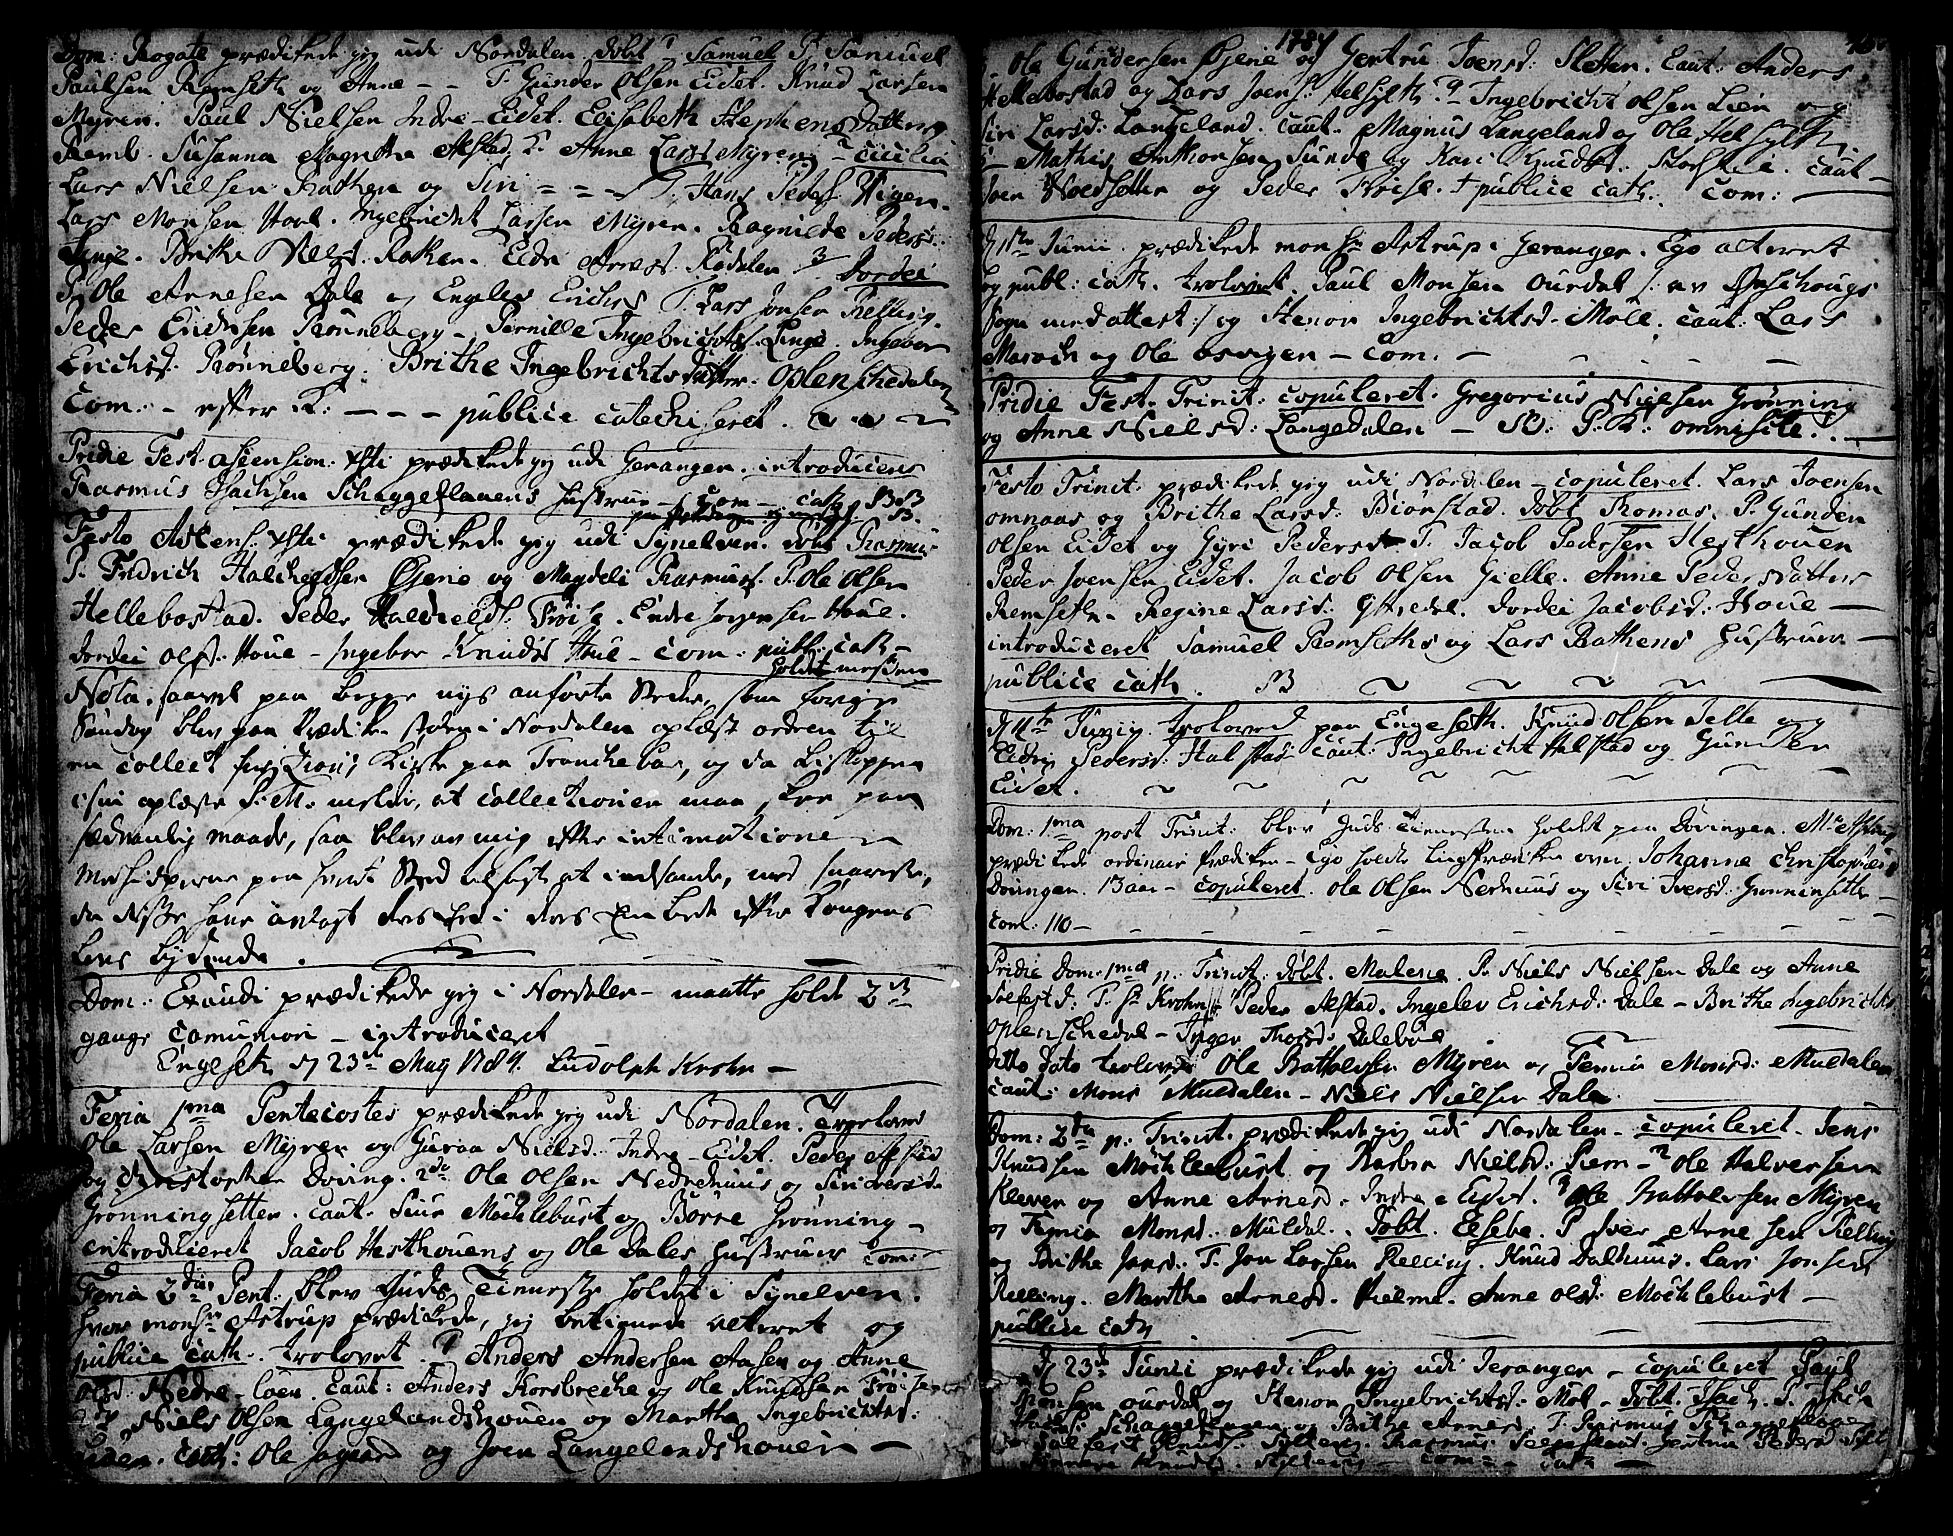 Dom: Rogate prædikede jeg udi Nordalen døbt 1 Samuel P. Samuel
Paulsen Remseth og Anne - - T. Gunder Olsen Eidet. Knud Larsen
Myren. Paul Nielsen Indre-Eidet. Elisabeth Stephens Datter
Remb. Susanna Magrethe Alstad. K. Anne Lars Myren. 2 Cicilia
Lars Nielsen Rathen og Siri = = = T. Hans Peders. Wigen.
Lars Monsen Hoel. Ingebricht Larsen Myren. Ragnilde Pedersd:
Linge. Brithe Nielsd. Rathen. Eidri Arnesd. Rødalen 3 Dordei
P. Ole Arnesen Dale og Engelev Erichsd. T. Lars Jonsen Relling.
Peder Erichsen Rønneberg - Pernille Ingebrichtsd. Linge. Ingebor
Erichsd. Rønneberg. Brithe Ingebrichtsdatter: Oplenschedalen
Com: - efter K: - - - publice catechiseret.
Pridie Fest. ascension: Xsti prædikede jeg udi Geranger. introducera
Rasmus Isachsen Schaggeflauens Hustrue - Com - cath
Festo Ascens: Xsti prædikede jeg udi Synelven. døbt Rasmus
P. Fridrich Halchieldsen Øjene og Magdeli Rasmusd. P. Ole Olsen
Hellebostad. Peder Halchields. Frøise. Endre Jørgensen Houe.
Dordei Olsd. Houe - Ingebor Knudsd. Houe - com: publ: cath -
holdt messen
Nota. saavel paa begge nys anførte Steder, som forige
Søndag blev paa Prædikestolen i Nordalen oplæst ordren til
en collect for Zions Kirke paa Tranchebar, og da Biskoppen
i sin oplæste P.M. melder, at collectionen maa skee paa
sædvanlig maade, saa blev av mig efter intimationen
Medhielperne paa hvert Sted
Dom: Exaudi prædikede jeg i Nordalen - maatte holde 2de
gange Comunion - introduceret
Engeseth d 23de May 1784. Ludolph Krohn -
Feria 1ma Pentecostes prædikede jeg udi Nordalen. Trolovet
Ole Larsen Myren og Guroa Nielsd. Indre-Eidet. Peder Alstad
og Christopher Døving. 2do Ole Olsen Nedrehuus og Siri Iversd.
Grønningsetter. caut. Siur Møchlebust og Børre Grønning -
introduceret Jacob Hesthouens og Ole Dales Hustruer com:
Feria 2da Pent: blev Guds Tieneste holdet i Synelven.
hvor monsr Astrup prædikede, jeg betiente alteret og
publice cath. trolovet. 1 Anders Andersen Aasen og Anne
Olsd. Nedre-loen. Caut: Anders Korsbreche og Ole Knudsen Frøise
2 Niels Olsen Langelandshouen og Marthe Ingebrichtsd:
Caut: Ole og Joen Langelandshouen -
1784
Ole Gundersen Øjene og Gertru Joensd: Sletten. Caut: Anders
Hellebostad og Lars Joens: Helsylth. 4 Ingebricht Olsen Lien og
Siri Larsd: Langeland. Caut. Magnus Langeland og Ole Helsylth
5 - Mathis Anthonsen Sunde og Kari Knudsd: Storstei. caut -
Joen Hoedsetter og Peder Frøise. + publice cath. com: -
d 1te Junii prædikede monsr Astrup i Geranger. Ego alteret
og publ: cath. trolovet. Paul Monsen Ourdal /: av Ørschougs
Sogn med attest :/ og Stenor Ingebrichtsd. Møll. caut: Lars
Maraak og Ole Osvigen - Com. -
Pridie Fest. Trinit: copuleret. Gregorius Nielsen Grønning
og Anne Nielsd: Langedalen -
Festo Trinit: prædikede jeg udi Nordalen - copuleret. Lars Joensen
omnaas og Brithe Larsd: Biørstad. døbt Thomas. P. Gunder
Olsen Eidet og Gyri Pedersd. T. Jacob Pedersen Hesthouen
Peder Joensen Eidet. Jacob Olsen Gielle. Anne Pedersdatter
Remseth - Regine Larsd: Yttredal. Dordei Jacobsd. Houe -
introduceret Samuel Remseths og Lars Rathens Hustruer -
publice cath.
d 11te Junij trolovet paa Engeseth. Knud Olsen Jelle og
Eidri Pedersd: Halstad. caut: Ingebricht Halstad og Gunder
Eidet.
Dom: 1ma post Trinit: blev Guds Tienesten holdt paa Døvingen. Mr Astrup
prædikede ordinair Prædiken - Ego holdte Liigprædiken over Johanne Christophersd
Døvingen. 13 aar - copuleret. Ole Olsen Nedhuus og Siri Iversd: Grønningsetter -
Com: 110 -
Pridie Dom: 1mæ p. Trinit: døbt. Malene. P. Niels Nielsen Dale og Anne
Solfestd: T. Hr Krohn. Peder Alstad. Ingelev Erichsd: Dale - Brithe Ingebrichtsd.
Oplenschedal - Inger Thorsd. Dalebue
ditto dato trolovet Ole Batholvsen Myren og Femia Monsd: Muldalen
caut: Mons Muldalen - Niels Nielsen Dale.
Dom: 2da p. Trinit: prædikede jeg udi Nordalen - copuleret. Jens
Knudsen Møchlebust og Barbra Nielsd: Rem - 2 Ole Halversen
Kleven og Anne Arnesd. Indre = Eidet. 3 Ole Batholvsen Myren
og Femia Monsd. Muldal. Døbt. Elsebe. P. Iver Arnesen Relling
og Brithe Jonsd. T. Jon Larsen Relling. Knud Dalhuus. Lars Jonsen
Relling. Marthe Arnesd. Kielme. Anne Olsd: Møchlebust -
publice cath.
d 23de Junii prædikede jeg udi Geranger - copuleret Paul
Monsen ourdal og Stenor Ingebrichtsd: Mol - døbt. Isach. P. Isach
Schaggeflauen og Brithe Arnesd. T. Rasmus Schaggeflauen
Solfest Knuds: Pedersd. Sylt
Knudsd. - com - cath -